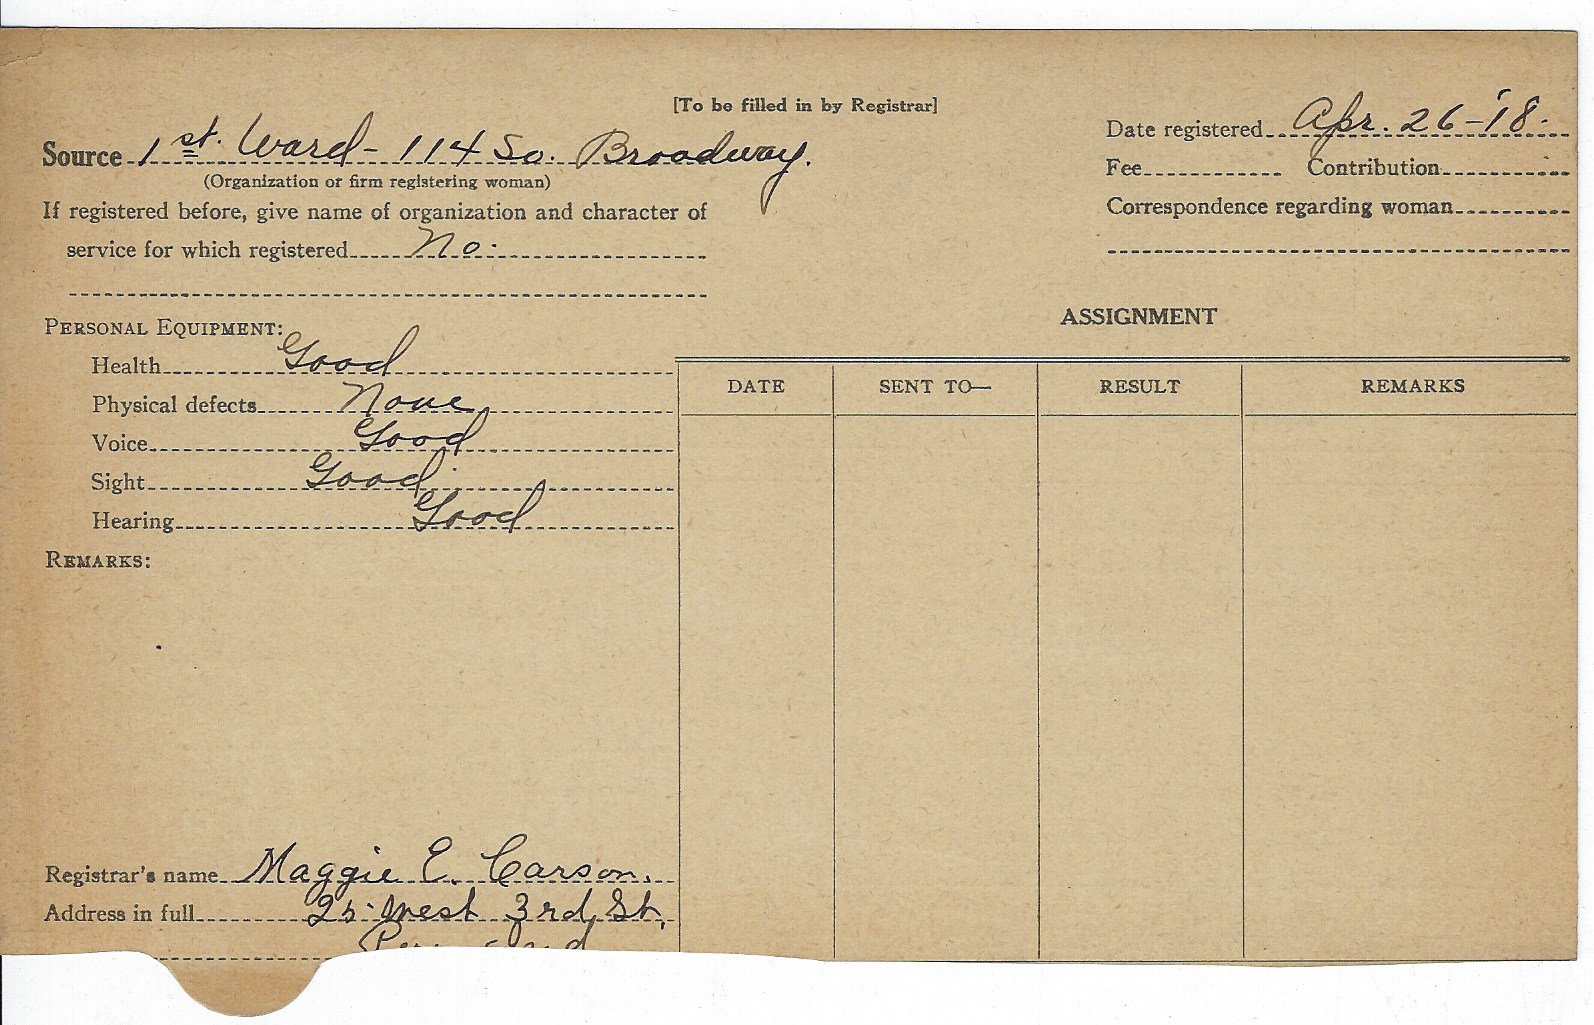 [To be filled in by Registrar]
Source 1st. Ward - 114 So. Broadway.
(Organization or firm registering woman)
If registered before, give name of organization and character of
service for which registered No.
Date registered Apr. 26-'18.
Fee Contribution
Correspondence regarding woman
PERSONAL EQUIPMENT:
Health Good
Physical defects None
Voice Good
Sight Good
Hearing Good
REMARKS:
ASSIGNMENT
DATE SENT TO— RESULT REMARKS
Registrar's name Maggie E. Carson.
Address in full 25 West 3rd St.